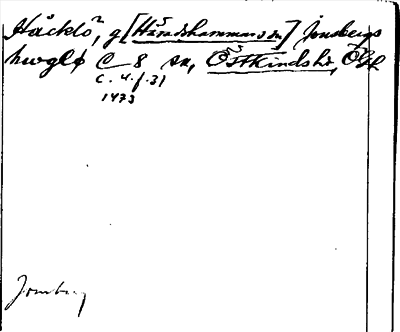 Häcklö, g [Häradshammars sn] Jonsbergs
hwglø C 8 sn, Östkinds hd, Ög
C. 4. f. 31
1473
Jonsberg